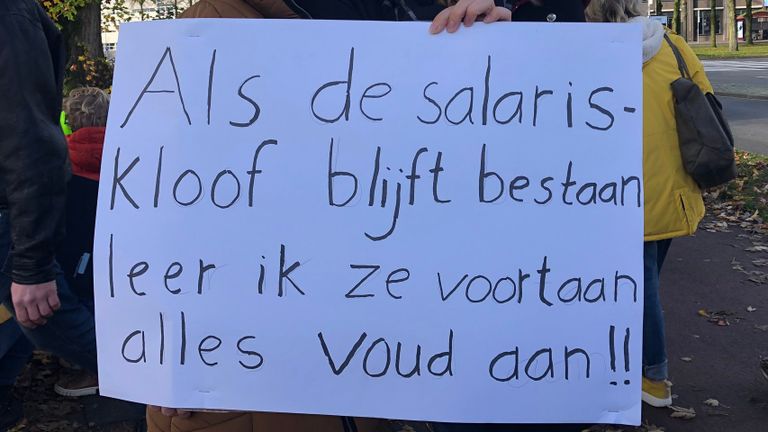 Als de salaris-
kloof blijft bestaan
leer ik ze voortaan
alles voud aan!!